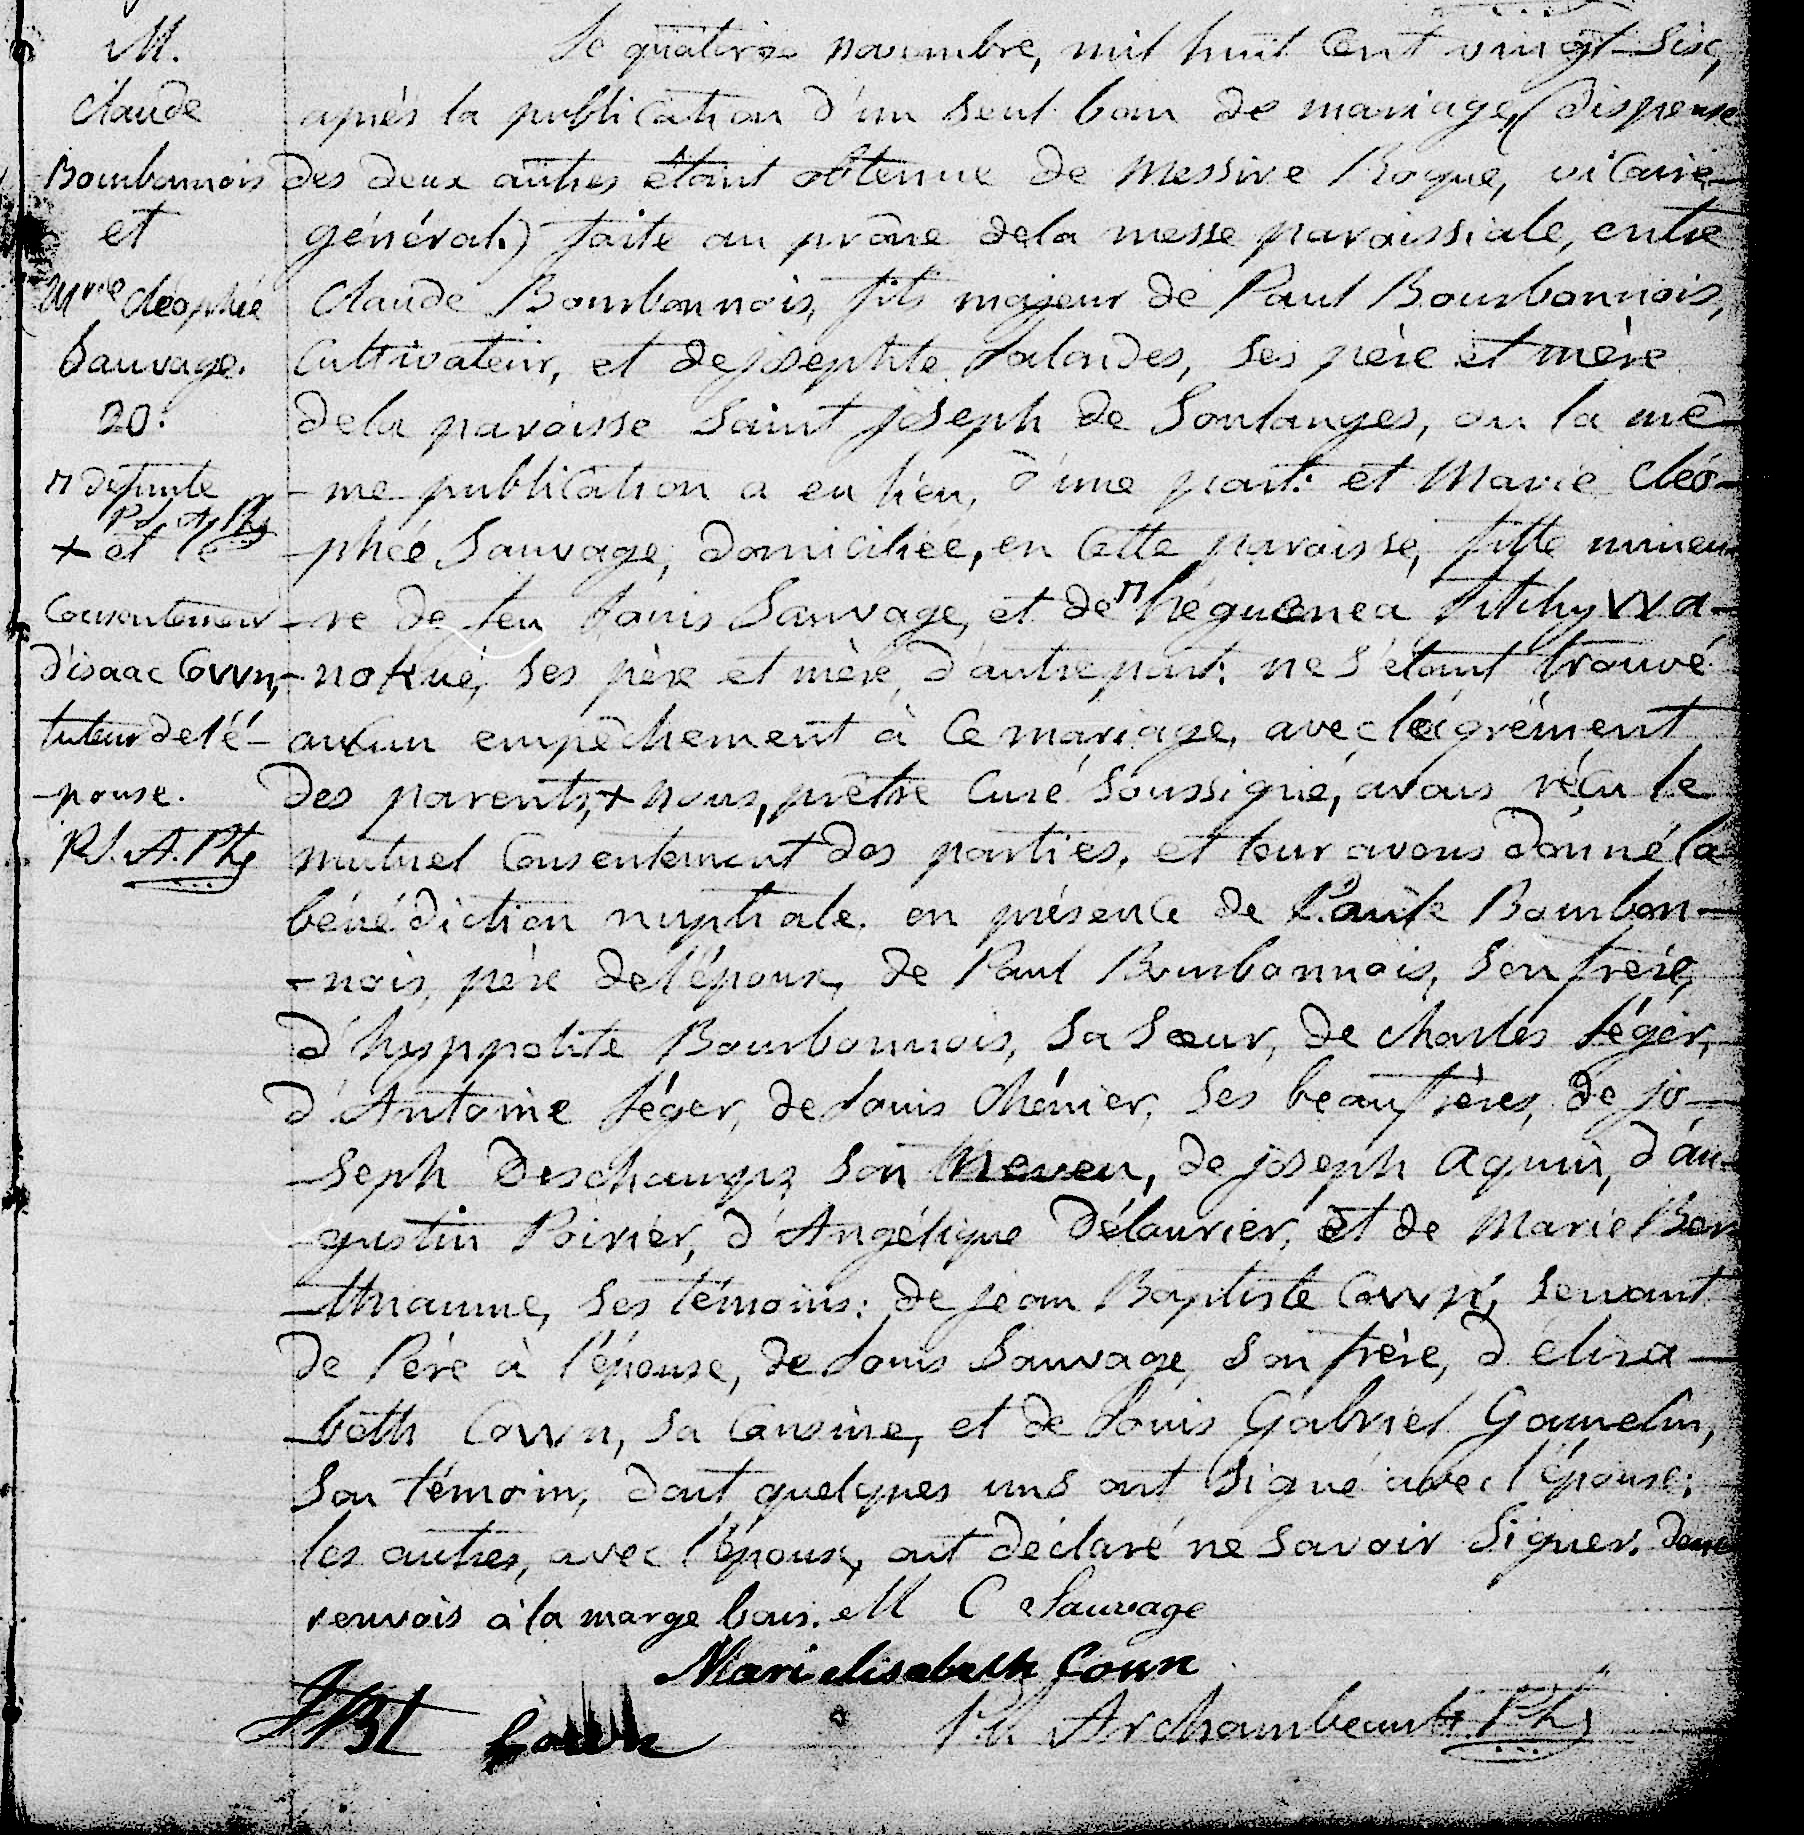 M.
Claude
Bourbonnois
et
Mrie Cléophée
Sauvage.
20.
π défunte
Pl. A. Ptre
+ et le
Consentement
d'isaac Cown,
tuteur de l'é-
-pouse.
Pl. A. Ptre
Le quatorze novembre, mil huit Cent vingt-Six,
après la publication d'un Seul ban de mariage, (dispense
des deux autres étant obtenue de Messire Roque, vicaire
général.) faite au prône dela messe paroissiale, entre
Claude Bourbonnois, fils majeur de Paul Bourbonnois,
Cultivateur, et de josephte Lalondes, Ses père et mère
dela paroisse Saint joseph de Soulanges, ou la mê-
-me publication a eu lieu, d'une part: et Marie Cléo-
-phée Sauvage, domiciliée, en Cette paroisse, fille mineu-
-re de feu Louis Sauvage, et de π héguenea Pitchy wa-
-nokué, Ses père et mère, d'autre part: ne S'étant trouvé
aucun empêchement à Ce mariage, avec l'agrément
des parents, + nous, prêtre Curé Soussigné, avons réçu le
mutuel Consentement des parties, et leur avons donné la
bénédiction nuptiale. en présence de Paul Bourbon-
-nois, père de l'époux, de Paul Bourbonnois, Son frère,
d'hyppolite Bourbonnois, Sa Sœur, de Charles Léger,
d'Antoine Léger, de Louis Chénier, Ses beaufrères, de jo-
-seph Deschamps, Son Neveu, de joseph Aquin, d'au-
-gustin Poirier, d'Angélique Délaurier, et de Marie Ber
-thiaume, Ses témoins: de jean Baptiste Cown, Servant
de Père à l'épouse, de Louis Sauvage, Son frère, d'éliza-
-beth Cown, Sa Cousine, et de Louis Gabriel Gamelin,
Son témoin, dont quelques uns ont Signé avec l'épouse;
les autres, avec l'époux, ont déclaré ne Savoir Signer. deux
renvois à la marge bons. M C Sauvage
Mari elisabeth Cown
JBt Cown
Pl. Archambeault. Ptre